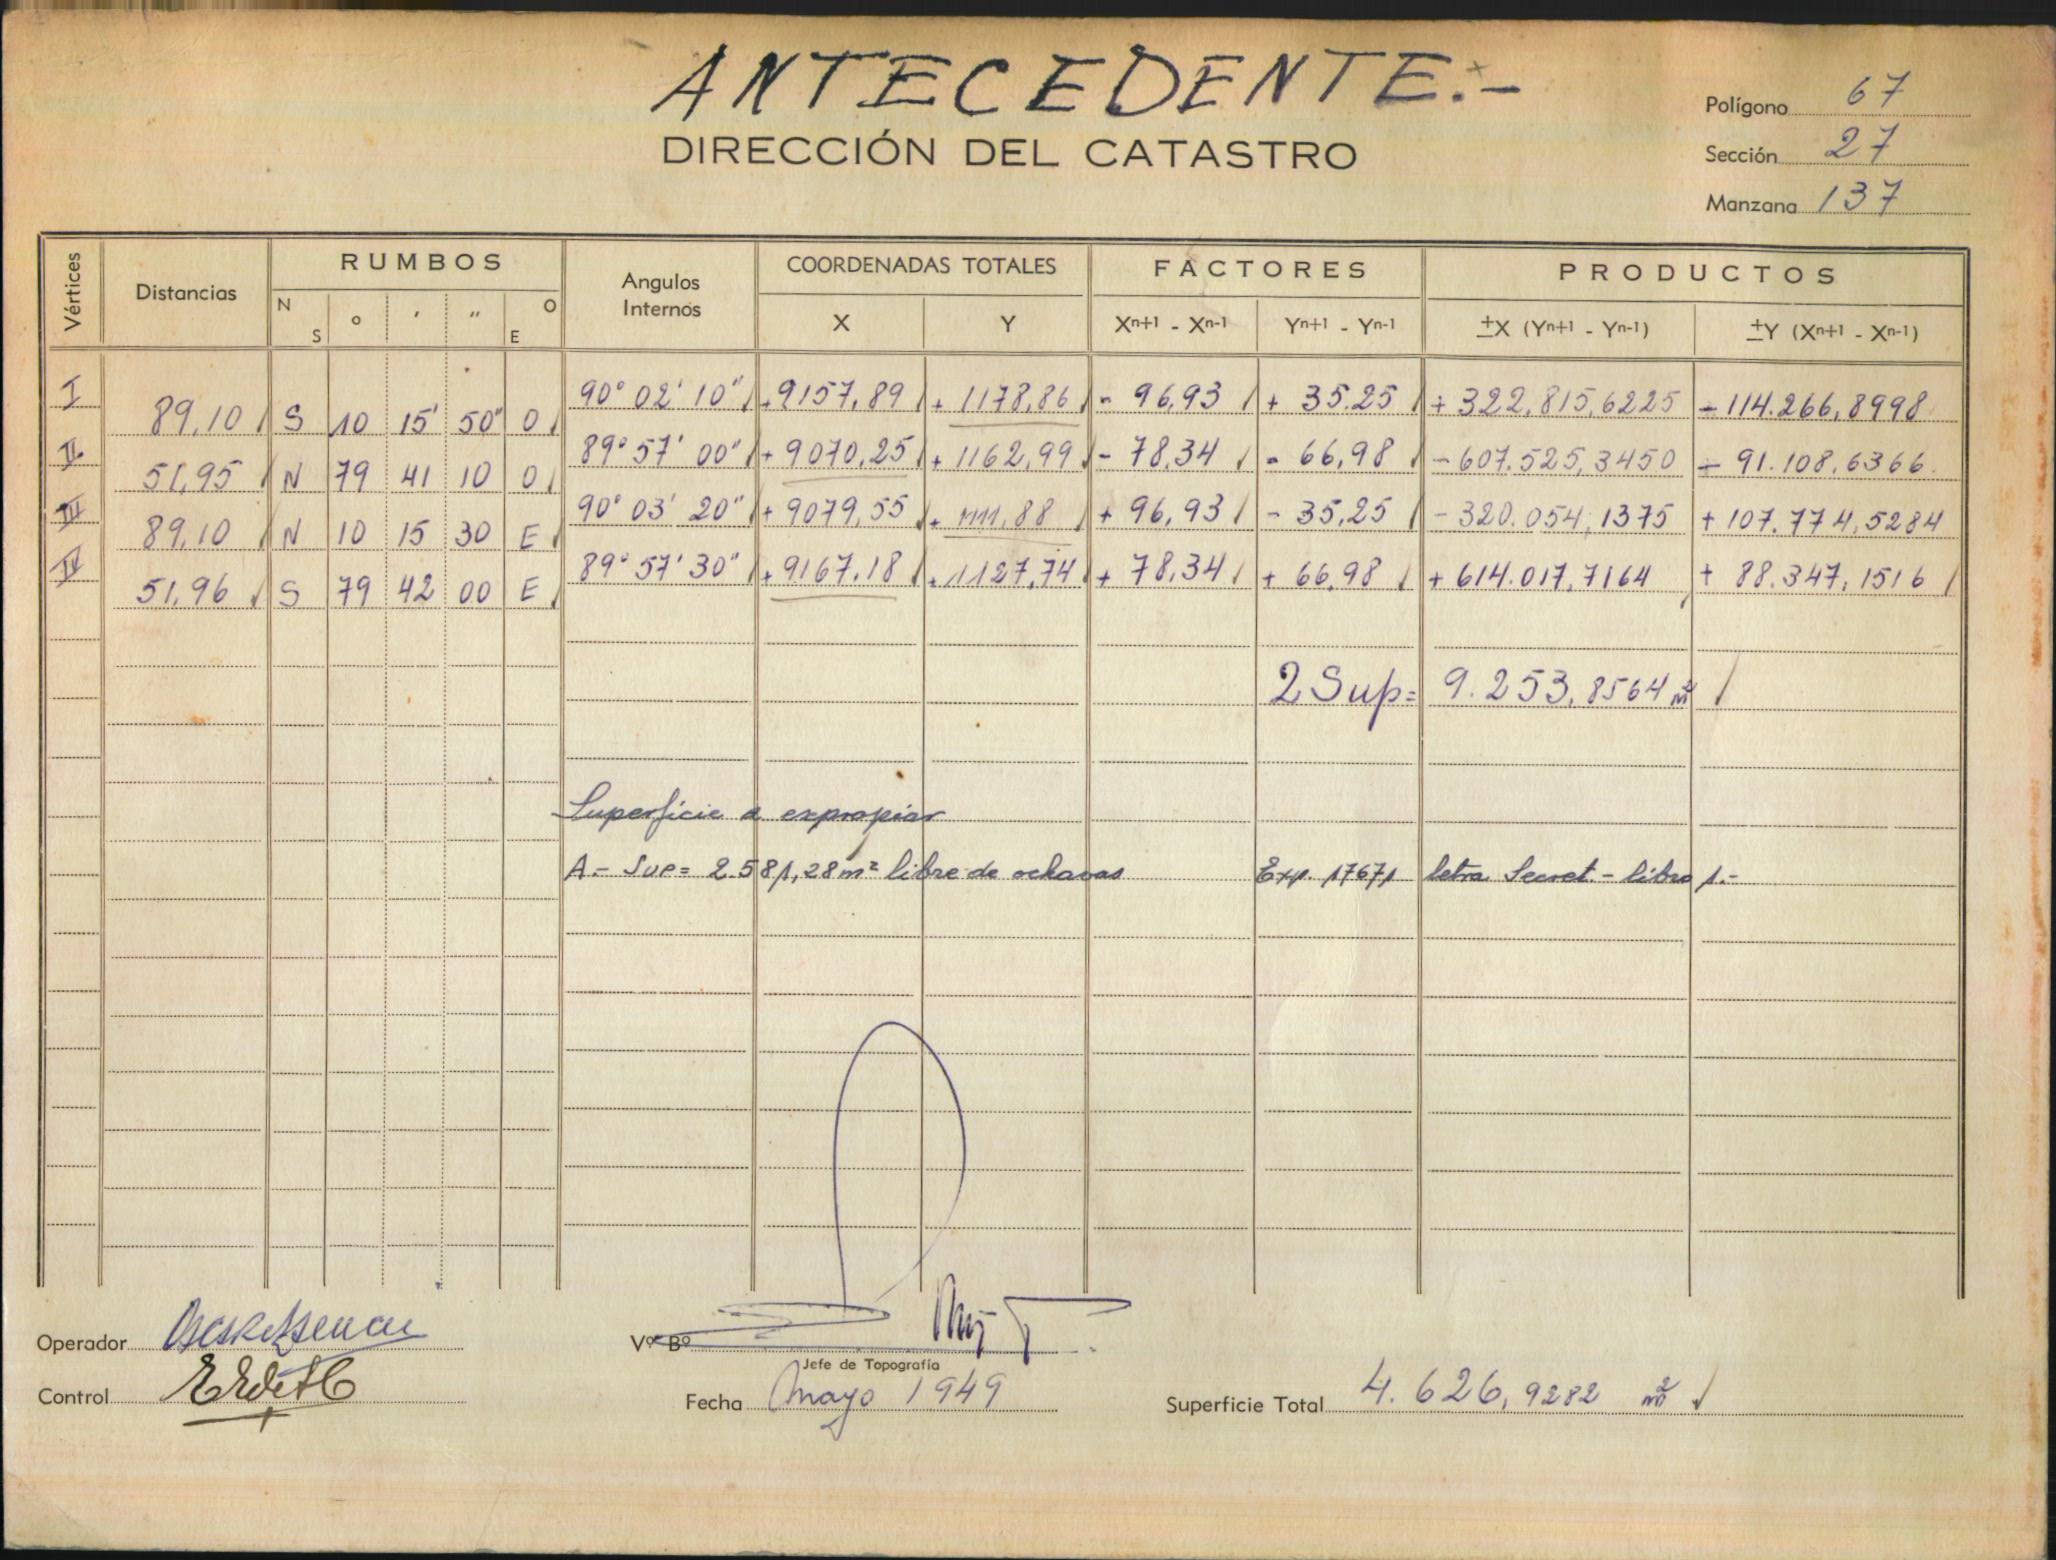 ANTECEDENTE:-
DIRECCIÓN DEL CATASTRO
Polígono 67
Sección 27
Manzana 137
Vértices Distancias RUMBOS Angulos Internos COORDENADAS TOTALES FACTORES PRODUCTOS
N S ° ' " O E X Y Xn+1 - Xn-1 Yn+1 - Yn-1 ±X (Yn+1 - Yn-1) ±Y (Xn+1 - Xn-1)
I 90° 02' 10" +9157,89 + 1178,86 - 96,93 + 35.25 + 322,815,6225 - 114.266,8998
89,10 S 10 15' 50" O
II 89° 57' 00" + 9070,25 + 1162,99 - 78,34 - 66,98 - 607.525,3450 - 91.108,6366
51,95 N 79 41 10 O
III 90° 03' 20" + 9079,55 + 1111,88 + 96,93 - 35,25 - 320.054,1375 + 107.774,5284
89,10 N 10 15 30 E
IV 89° 57' 30" + 9167,18 + 1127,74 + 78,34 + 66,98 + 614.017,7164 + 88.347,1516
51,96 S 79 42 00 E
2 Sup= 9.253,8564 m²
Superficie a expropiar
A.- Sup= 2.581,28 m² libre de ochavas Exp. 17671 letra Secret.- libro 1.-
Operador
Vº Bº
Jefe de Topografía
Control
Fecha Mayo 1949
Superficie Total 4.626,9282 m²